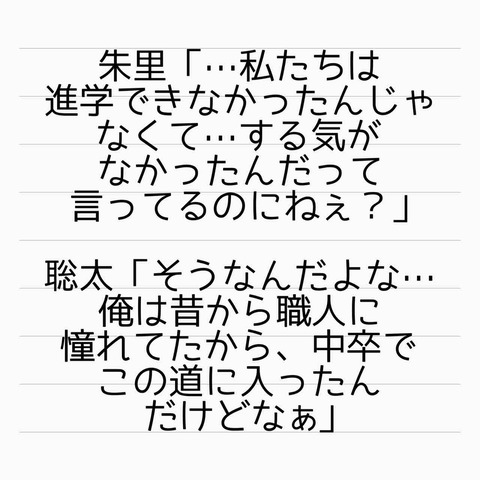 朱里「…私たちは
進学できなかったんじゃ
なくて…する気が
なかったんだって
言ってるのにねぇ？」
聡太「そうなんだよな…
俺は昔から職人に
憧れてたから、中卒で
この道に入ったん
だけどなぁ」